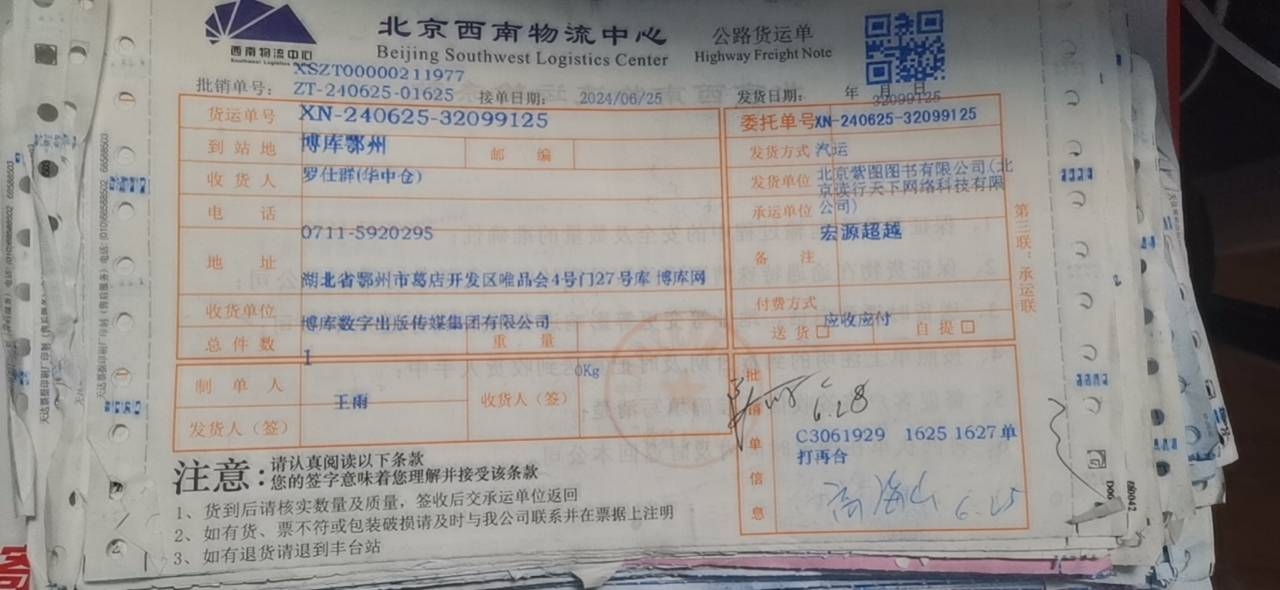 北京西南物流中心
公路货运单
西南物流中心
Southwest Logistics Center
Beijing Southwest Logistics Center
Highway Freight Note
XSZT00000211977
批销单号：ZT-240625-01625 接单日期： 2024/06/25 发货日期： 年 月 日
32099125
货运单号 XN-240625-32099125 委托单号 XN-240625-32099125
到站地 博库鄂州 邮编 发货方式 汽运
收货人 罗仕群(华中仓) 发货单位 北京紫图图书有限公司(北京读行天下网络科技有限公司)
电话 0711-5920295 承运单位 宏源超越
地址 湖北省鄂州市葛店开发区唯品会4号门27号库 博库网 备注
收货单位 博库数字出版传媒集团有限公司 付费方式 应收应付
总件数 1 重量 0Kg 送货□ 自提□
制单人 王雨 收货人（签） 6.28
发货人（签）
批销单信息 C3061929 1625 1627单
打再合
6.25
第三联：承运联
注意：请认真阅读以下条款
您的签字意味着您理解并接受该条款
1、货到后请核实数量及质量，签收后交承运单位返回
2、如有货、票不符或包装破损请及时与我公司联系并在票据上注明
3、如有退货请退到丰台站